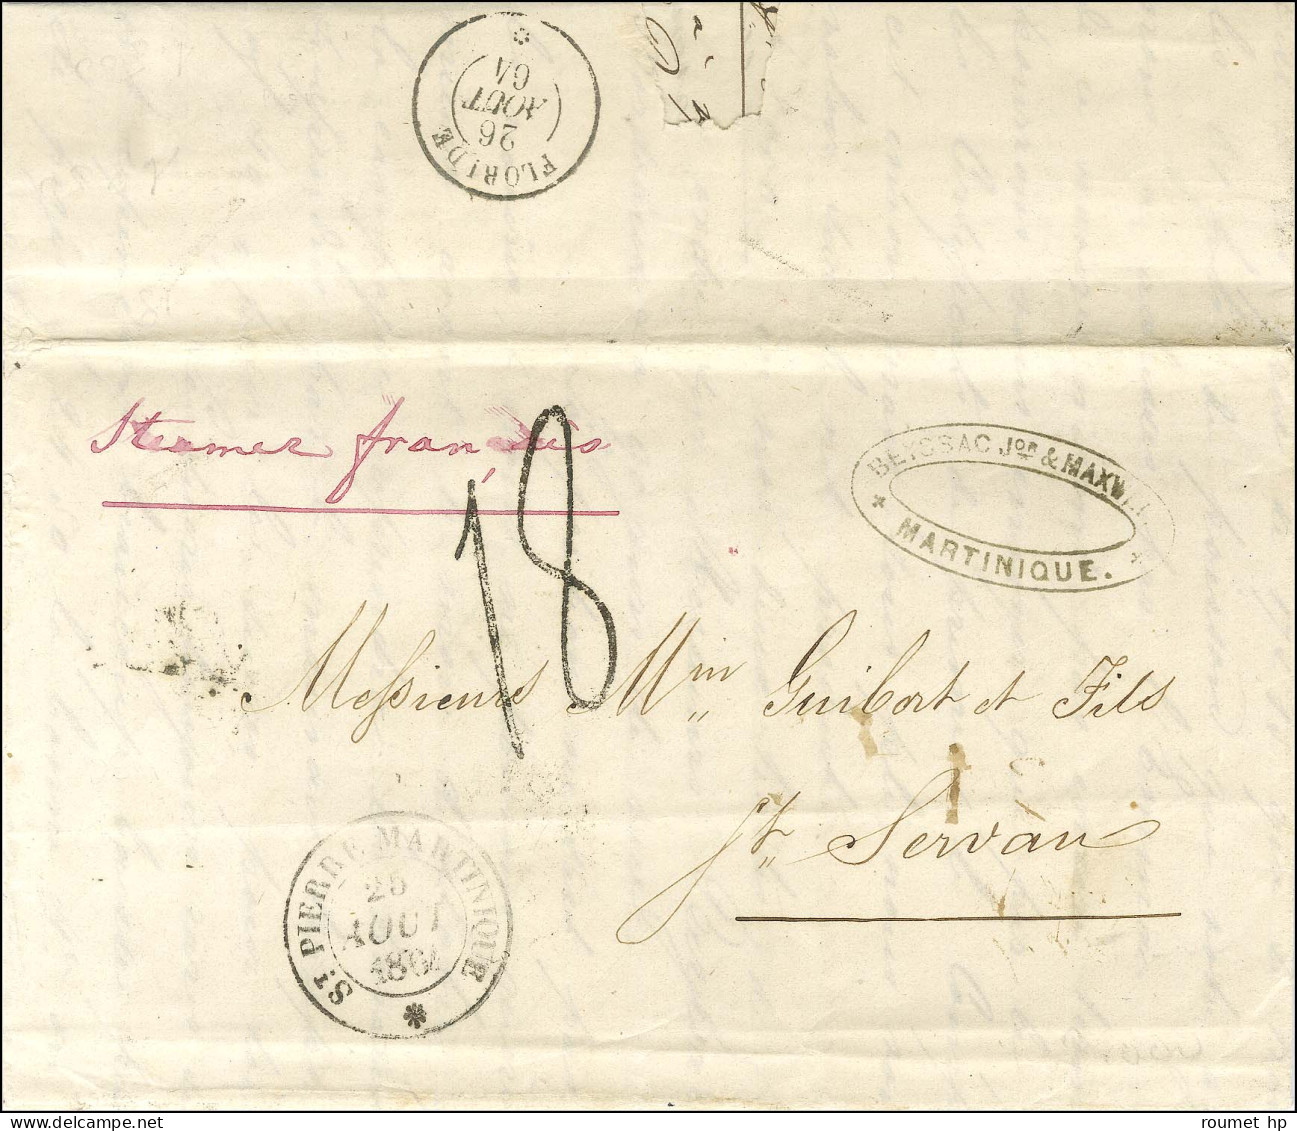 FLORIDE
26
AOUT
64
Steamer français
18
BEYSSAC Jne & MAXW
MARTINIQUE.
Messieurs Wm Guibert et Fils
St Servan
ST PIERRE MARTINIQUE
25
AOUT
1864
roumet hp